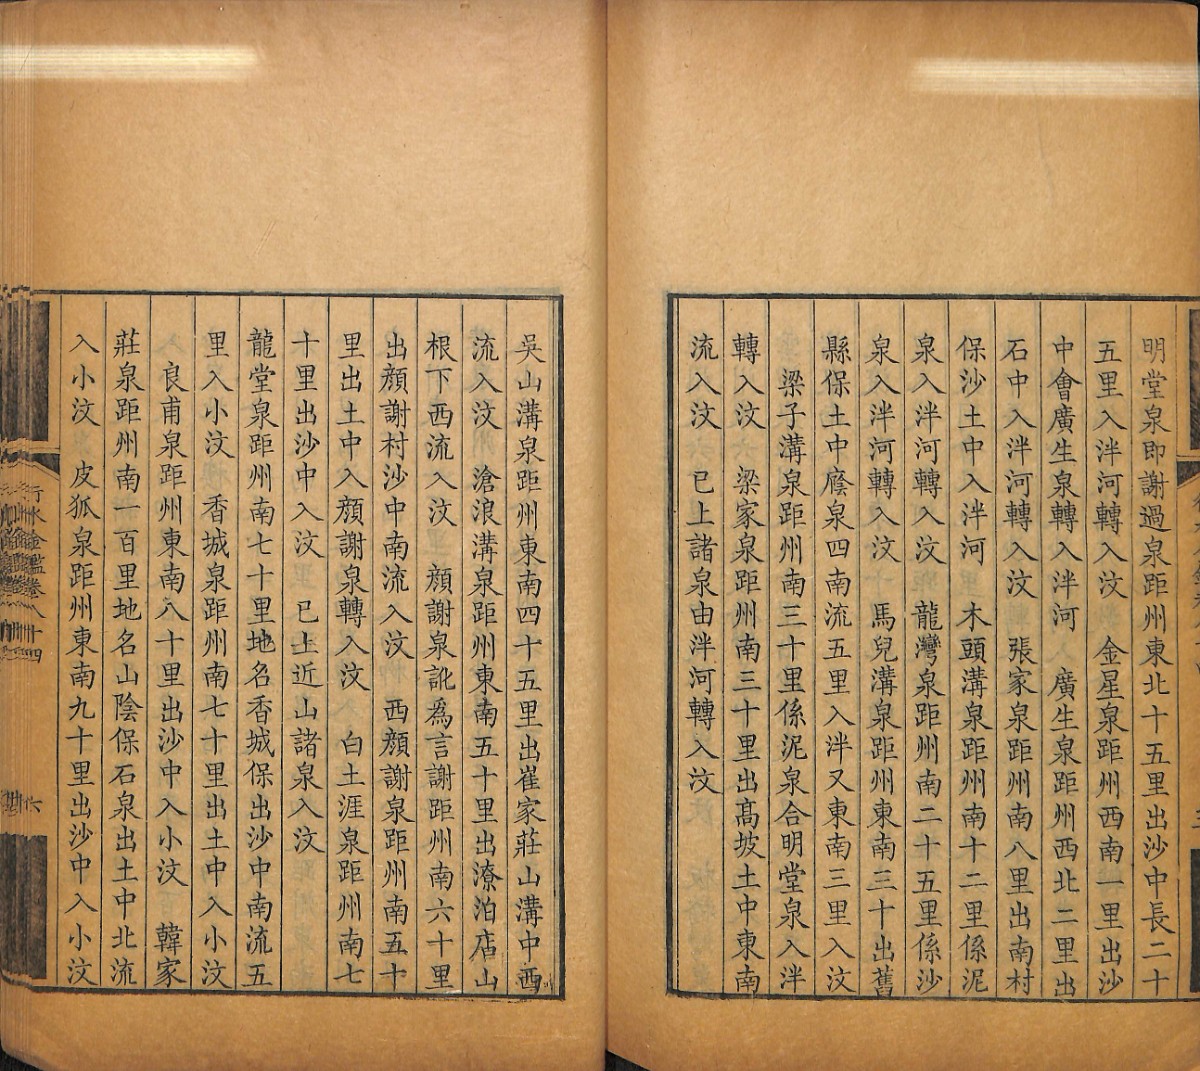 明堂泉即謝過泉距州東北十五里出沙中長二十
五里入泮河轉入汶　金星泉距州西南一里出沙
中會廣生泉轉入泮河　廣生泉距州西北二里出
石中入泮河轉入汶　張家泉距州南八里出南村
保沙土中入泮河　木頭溝泉距州南十二里係泥
泉入泮河轉入汶　龍灣泉距州南二十五里係沙
泉入泮河轉入汶　馬兒溝泉距州東南三十出舊
縣保土中廕泉四南流五里入泮又東南三里入汶
梁子溝泉距州南三十里係泥泉合明堂泉入泮
轉入汶　梁家泉距州南三十里出高坡土中東南
流入汶　已上諸泉由泮河轉入汶
吳山溝泉距州東南四十五里出崔家莊山溝中西
流入汶　滄浪溝泉距州東南五十里出潦泊店山
根下西流入汶　顏謝泉訛為言謝距州南六十里
出顏謝村沙中南流入汶　西顏謝泉距州南五十
里出土中入顏謝泉轉入汶　白土涯泉距州南七
十里出沙中入汶　已上近山諸泉入汶
龍堂泉距州南七十里地名香城保出沙中南流五
里入小汶　香城泉距州南七十里出土中入小汶
良甫泉距州東南八十里出沙中入小汶　韓家
莊泉距州南一百里地名山陰保石泉出土中北流
入小汶　皮狐泉距州東南九十里出沙中入小汶
行水金鑑卷八十四
六